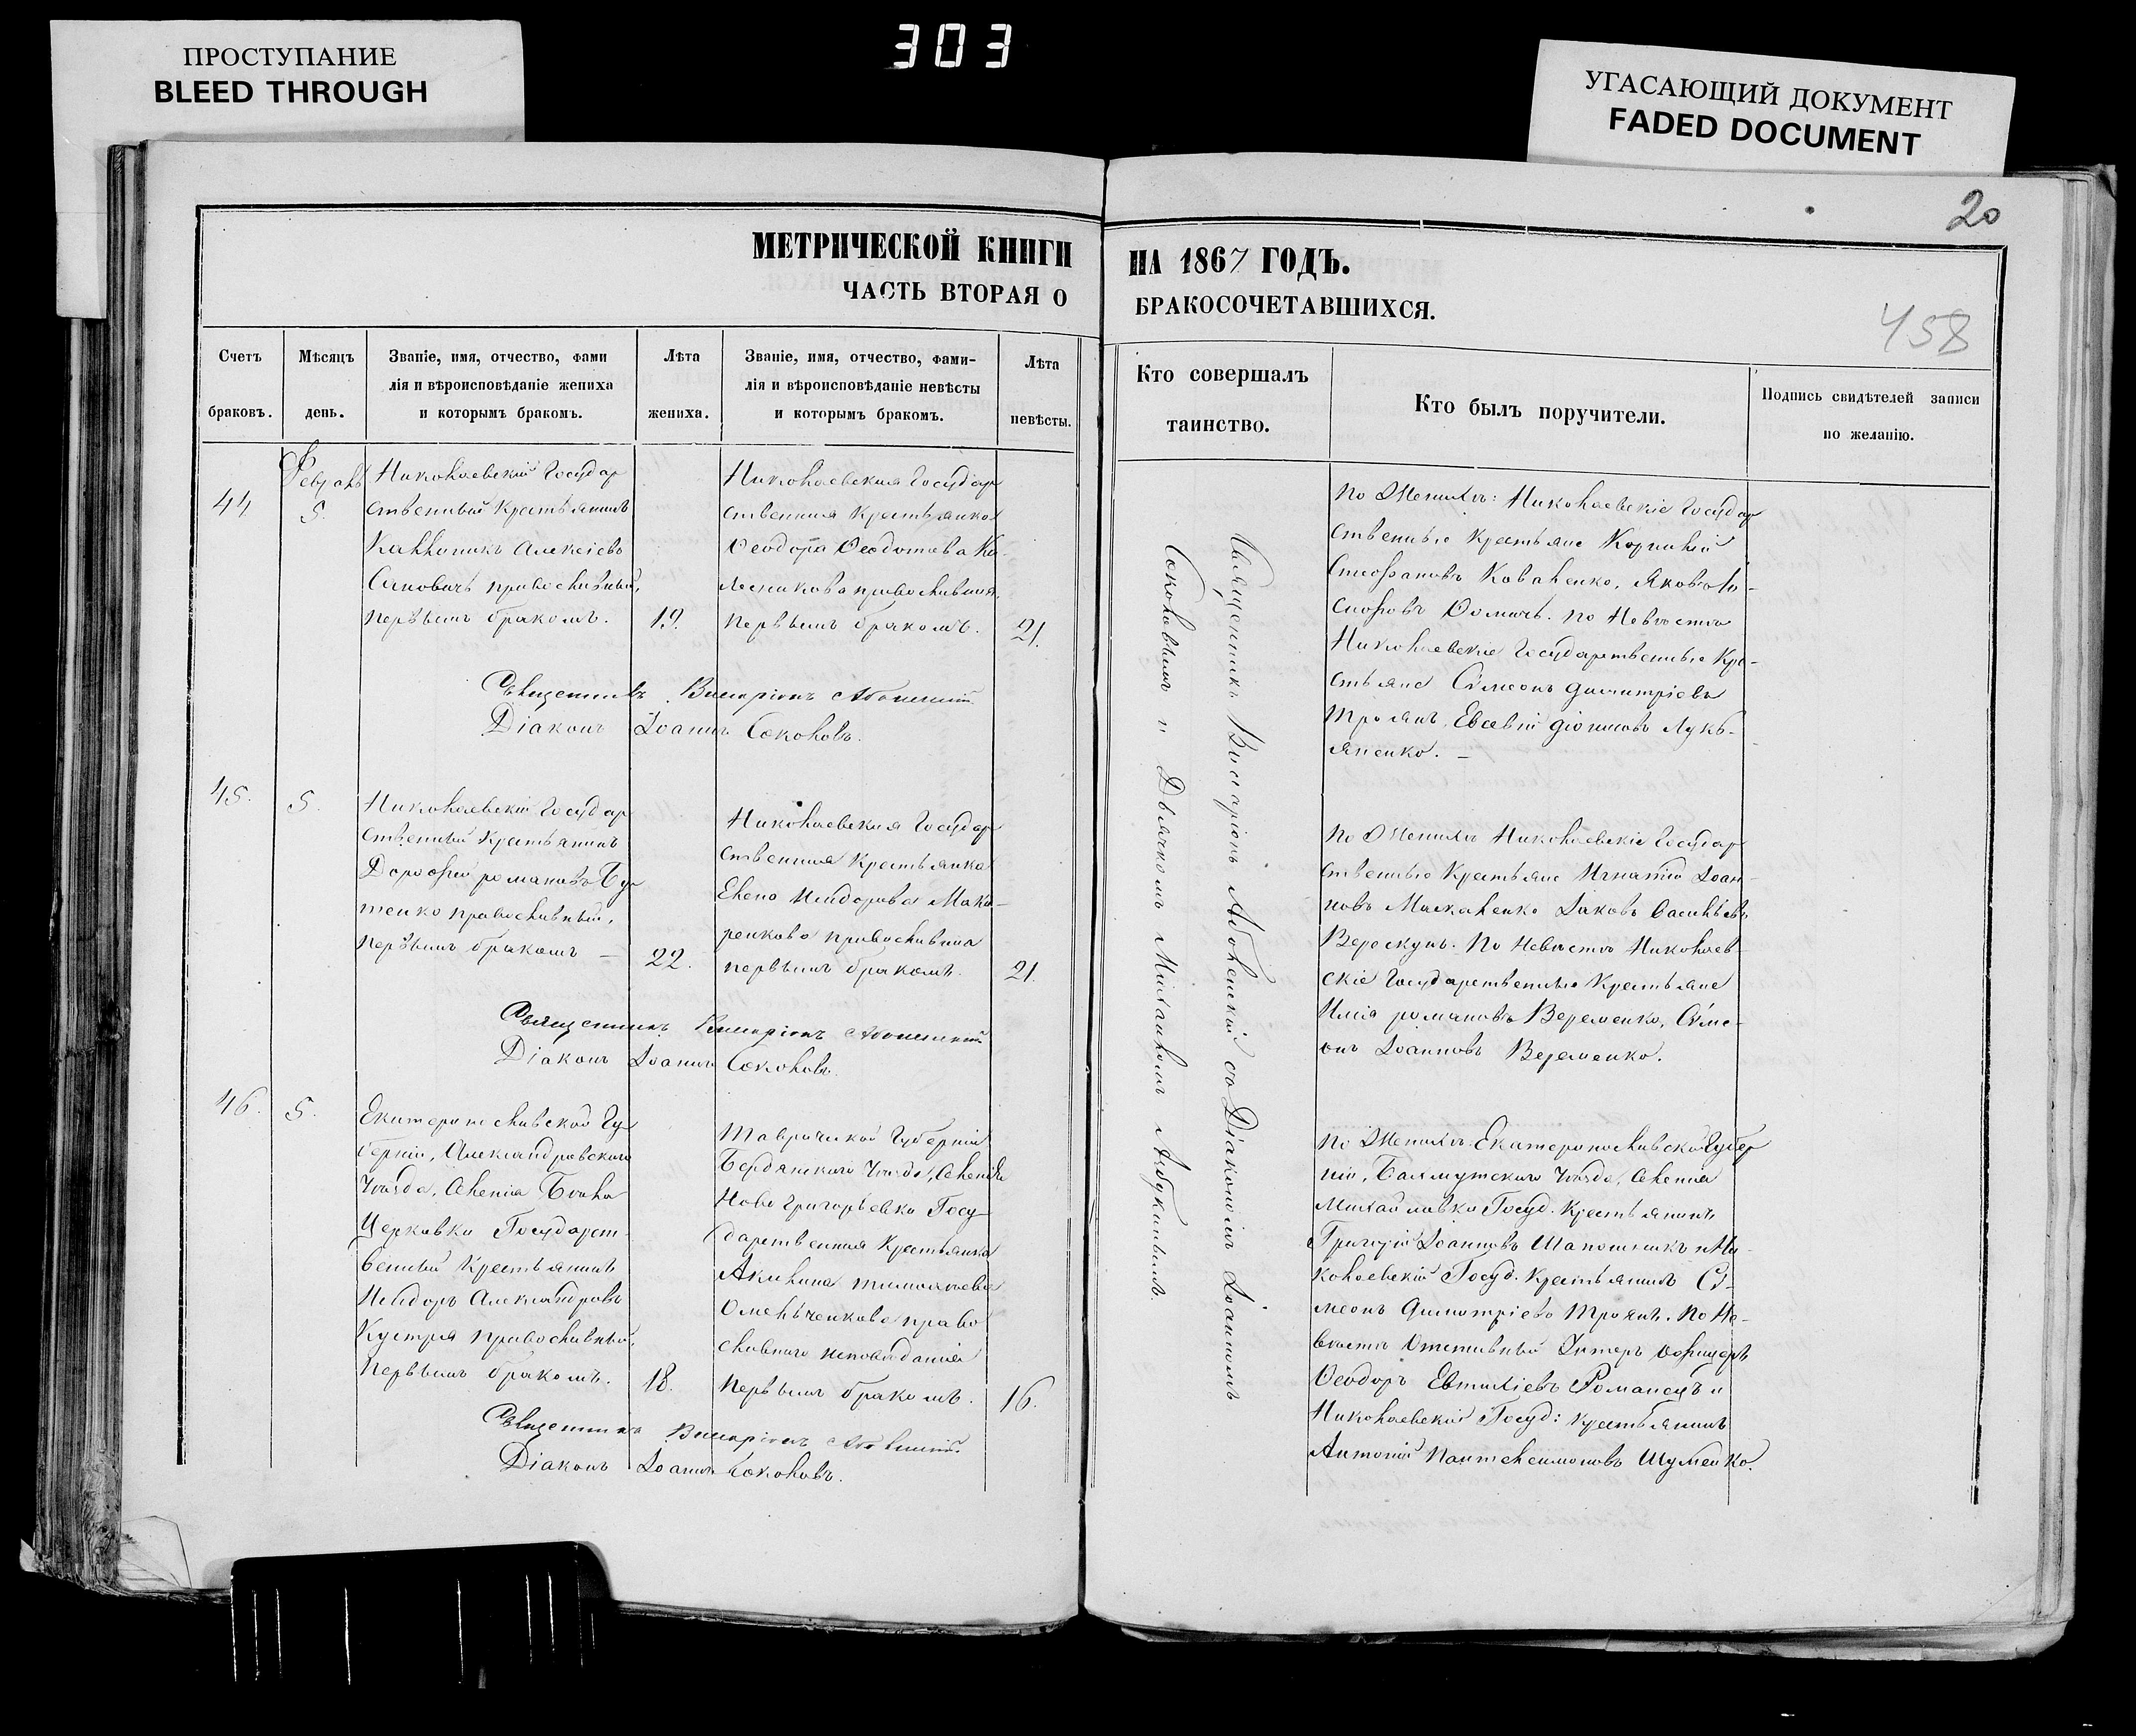 ПРОСТУПАНИЕ
BLEED THROUGH
303
УГАСАЮЩИЙ ДОКУМЕНТ
FADED DOCUMENT
20
МЕТРИЧЕСКОЙ КНИГИ НА 1867 ГОДЪ.
ЧАСТЬ ВТОРАЯ О БРАКОСОЧЕТАВШИХСЯ.
458
Счетъ
браковъ.
Мѣсяцъ
день.
Званіе, имя, отчество, фами
лія и вѣроисповѣданіе жениха
и которымъ бракомъ.
Лѣта
жениха.
Званіе, имя, отчество, фами-
лія и вѣроисповѣданіе невѣсты
и которымъ бракомъ.
Лѣта
невѣсты.
Кто совершалъ
таинство.
Кто былъ поручители.
Подпись свидѣтелей записи
по желанію.
44
Февраль
5.
Николаевскій Государ
ственный Крестьянинъ
Каллиникъ Алексіевъ
православный,
первымъ бракомъ.
19.
Николаевская Государ
ственная Крестьянка
Ѳеодора Ѳеодотова Ко
лесникова православная,
первымъ бракомъ.
21.
Священникъ Виссаріонъ
Діаконъ Іоаннъ Соколовъ.
По Женихѣ: Николаевскіе Государ
ственные Крестьяне Корнилій
Стефановъ Коваленко, Яковъ Іо-
сифовъ Ѳомичъ. по Невѣстѣ
Николаевскіе Государственные Кре-
стьяне Сѵмеонъ Димитріевъ
Троянъ, Евсевій Діонисовъ Лукь-
яненко. –
45.
5.
Николаевскій Государ
ственный Крестьянинъ
Дорофей романовъ Бу
тенко православный,
первымъ бракомъ –
22.
Николаевская Государ
ственная Крестьянка
Елена Исидорова Мака-
ренкова православная
первымъ бракомъ.
21.
Священникъ Виссаріонъ
Діаконъ Іоаннъ Соколовъ.
По Женихѣ Николаевскіе Государ
ственные Крестьяне Игнатій Іоан
новъ Москаленко Іаковъ Васильевъ
Верескунъ. По Невѣстѣ Николаев-
скіе Государственные Крестьяне
Илія романовъ Веременко, Сѵме-
онъ Іоанновъ Веременко.
46.
5.
Екатеринославской Гу
берніи, Александровского
Уѣзда, Селенія Бѣла
Церковки Государст-
венный Крестьянинъ
Исидоръ Александровъ
Кустря православный,
первымъ бракомъ.
18.
Таврической Губерніи
Бердянскаго Уѣзда, Селенія
Ново Григорьевки Госу
дарственная Крестьянка
Акилина тимофѣева
Омельченкова право
славнаго исповѣданія
первымъ бракомъ.
16.
Священникъ Виссаріонъ
Діаконъ Іоаннъ Соколовъ.
По Женихѣ: Екатеринославской Губер
ніи, Бахмутскаго Уѣзда, Селенія
Михайловки Госуд. Крестьянинъ
Григорій Іоанновъ Шапошникъ и Ни-
колаевскій Госуд. Крестьянинъ Сѵ-
меонъ Димитріевъ Троянъ. По Не-
вѣстѣ Отставный Унтеръ Офицеръ
Ѳеодоръ Евтихіевъ Романецъ и
Николаевскій Госуд: Крестьянинъ
Антоній Пантелеимоновъ Шумейко.
Священникъ Виссаріонъ съ Діакономъ Іоанномъ
Соколовымъ и Дьячкомъ Михаиломъ